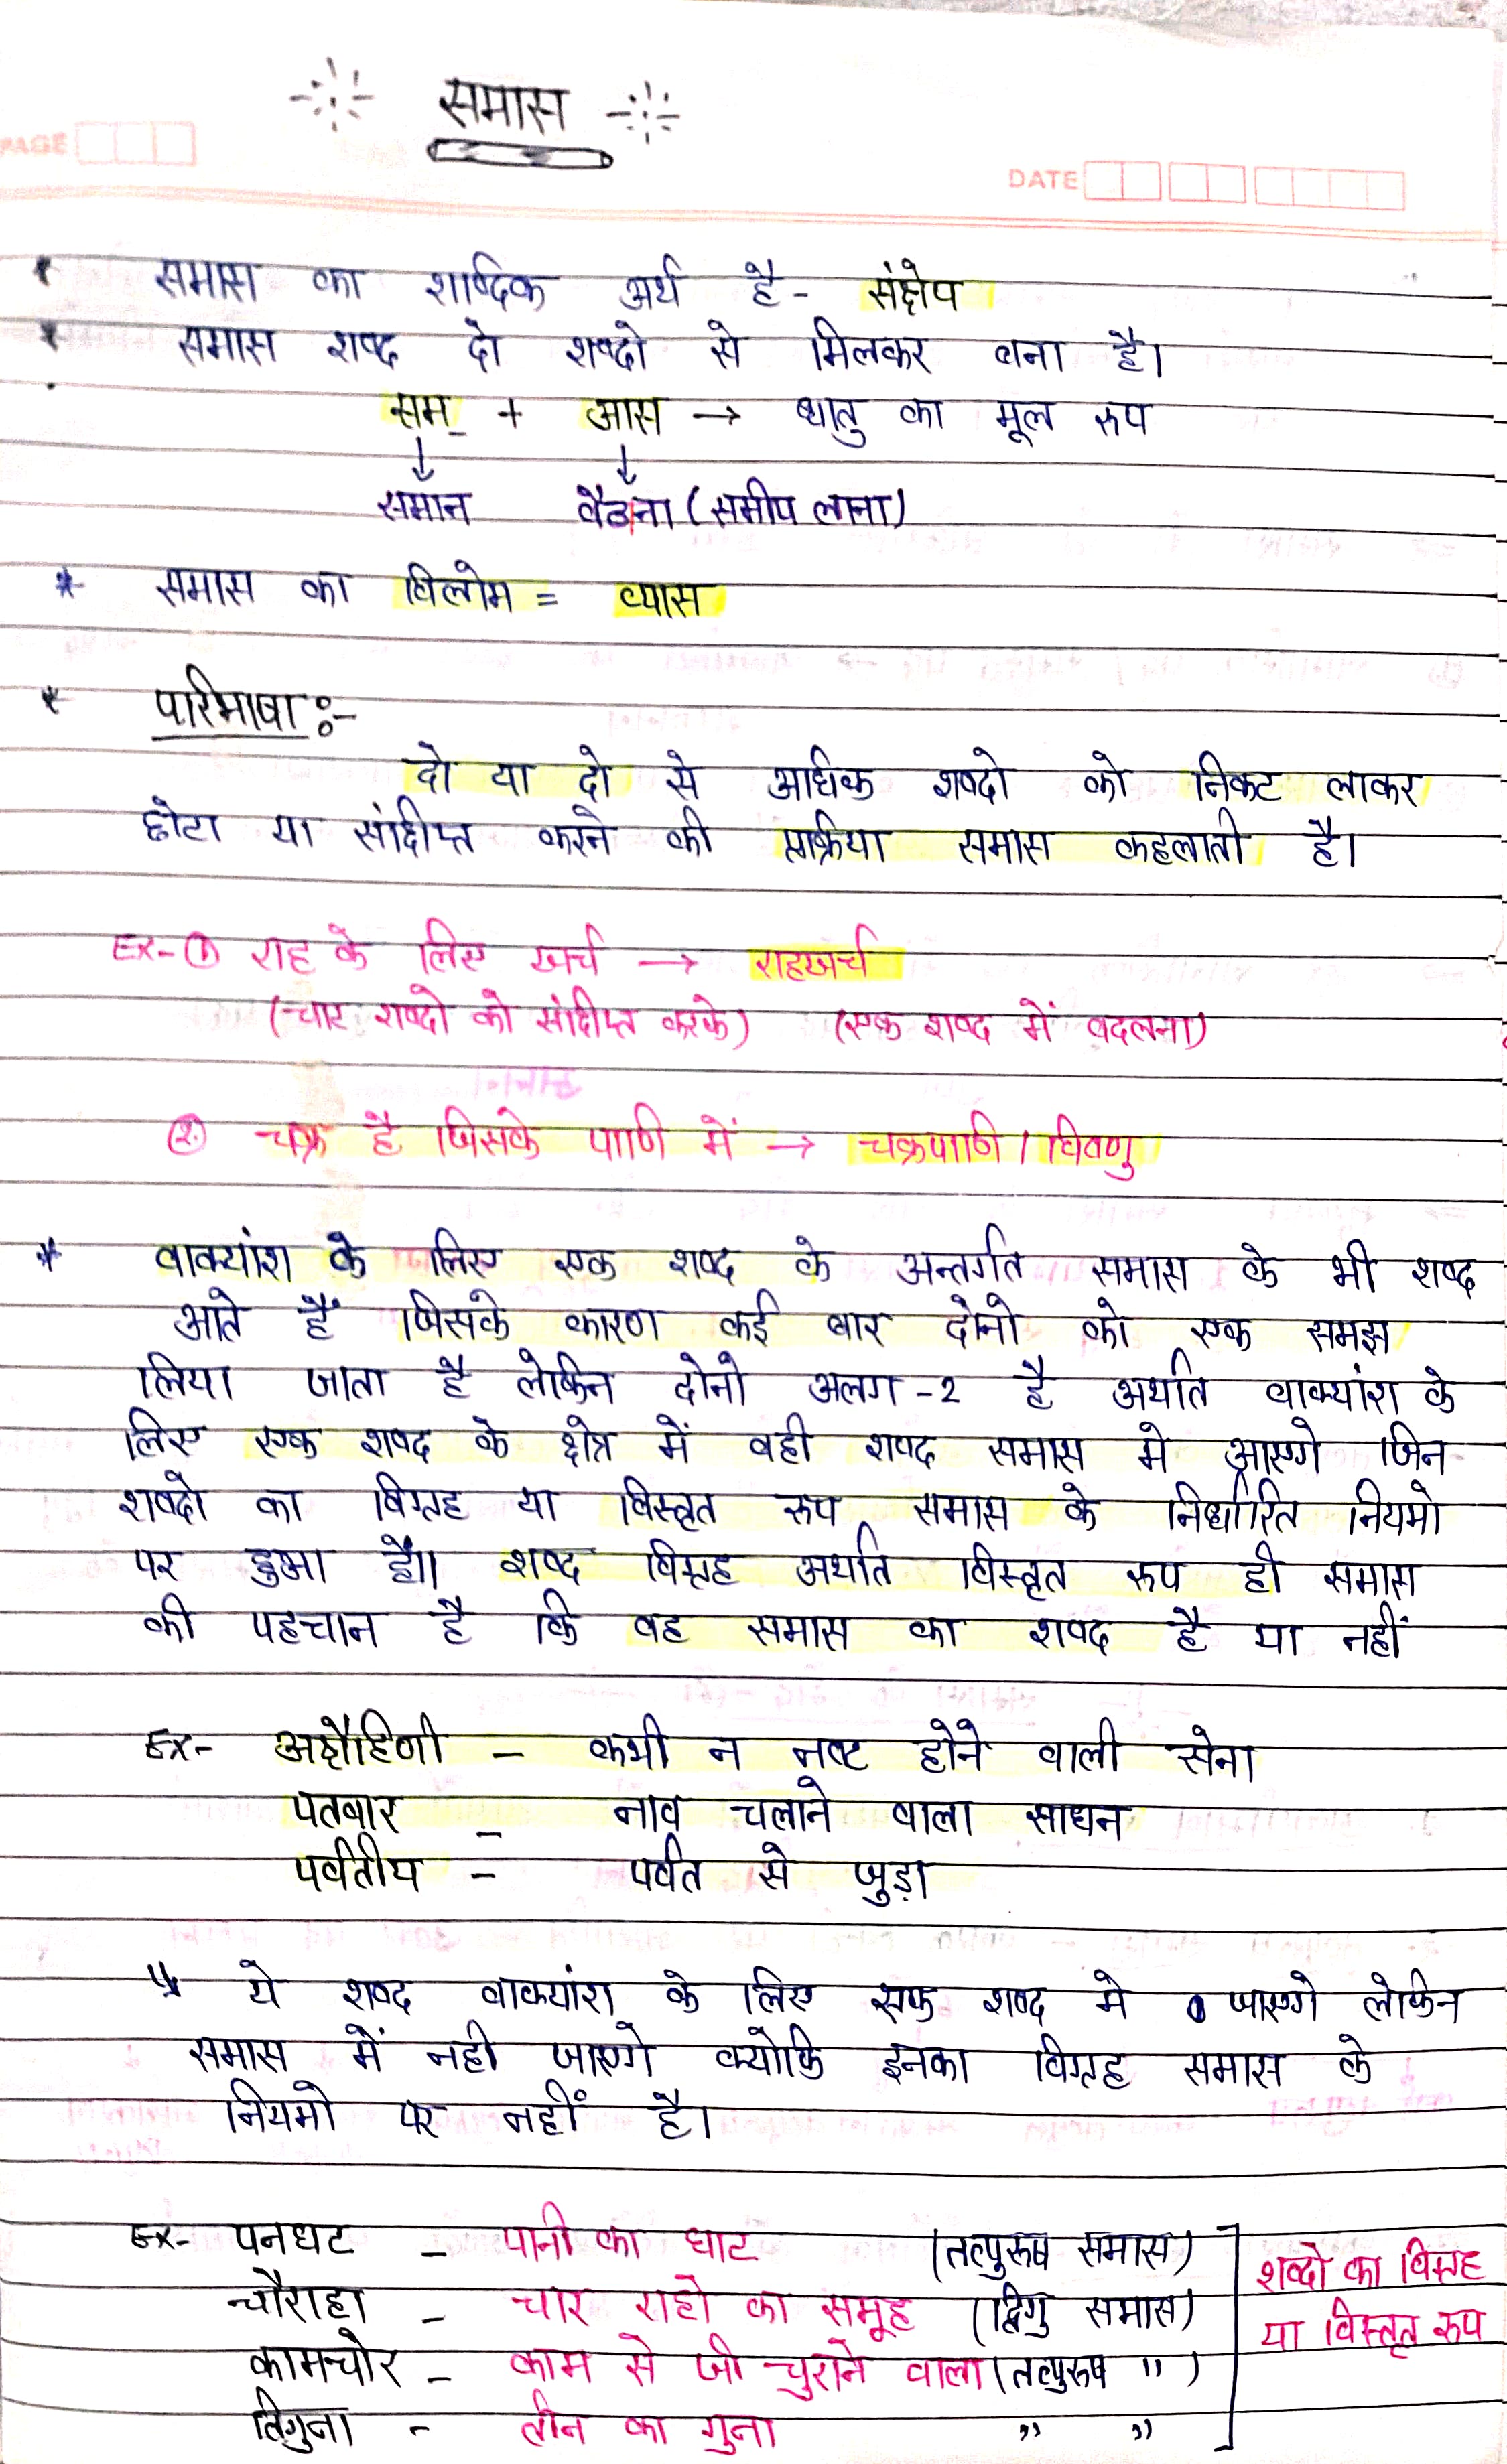 समास
PAGE
DATE
* समास का शाब्दिक अर्थ है - संक्षेप
* समास शब्द दो शब्दो से मिलकर बना है।
सम् + आस → धातु का मूल रूप
↓ ↓
समान बैठना (समीप लाना)
* समास का विलोम = व्यास
* परिभाषा :-
दो या दो से अधिक शब्दो को निकट लाकर
छोटा या संक्षिप्त करने की प्रक्रिया समास कहलाती है।
Ex- ① राह के लिए खर्च → राहखर्च
(चार शब्दो को संक्षिप्त करके) (एक शब्द में बदलना)
② चक्र है जिसके पाणि में → चक्रपाणि / विष्णु
* वाक्यांश के लिए एक शब्द के अन्तर्गत समास के भी शब्द
आते हैं जिसके कारण कई बार दोनो को एक समझ
लिया जाता है लेकिन दोनो अलग -2 है अर्थात वाक्यांश के
लिए एक शब्द के क्षेत्र में वही शब्द समास मे आएगे जिन
शब्दो का विग्रह या विस्तृत रूप समास के निर्धारित नियमो
पर हुआ हो। शब्द विग्रह अर्थात विस्तृत रूप ही समास
की पहचान है कि वह समास का शब्द है या नहीं
Ex- अक्षौहिणी - कभी न नष्ट होने वाली सेना
पतवार - नाव चलाने वाला साधन
पर्वतीय - पर्वत से जुड़ा
ये शब्द वाक्यांश के लिए एक शब्द मे जाएगे लेकिन
समास में नही जाएगे क्योकि इनका विग्रह समास के
नियमो पर नहीं है।
Ex- पनघट - पानी का घाट (तत्पुरूष समास)
चौराहा - चार राहो का समूह (द्विगु समास)
कामचोर - काम से जी चुराने वाला (तत्पुरूष ")
तिगुना - तीन का गुना " "
शब्दो का विग्रह
या विस्तृत रूप